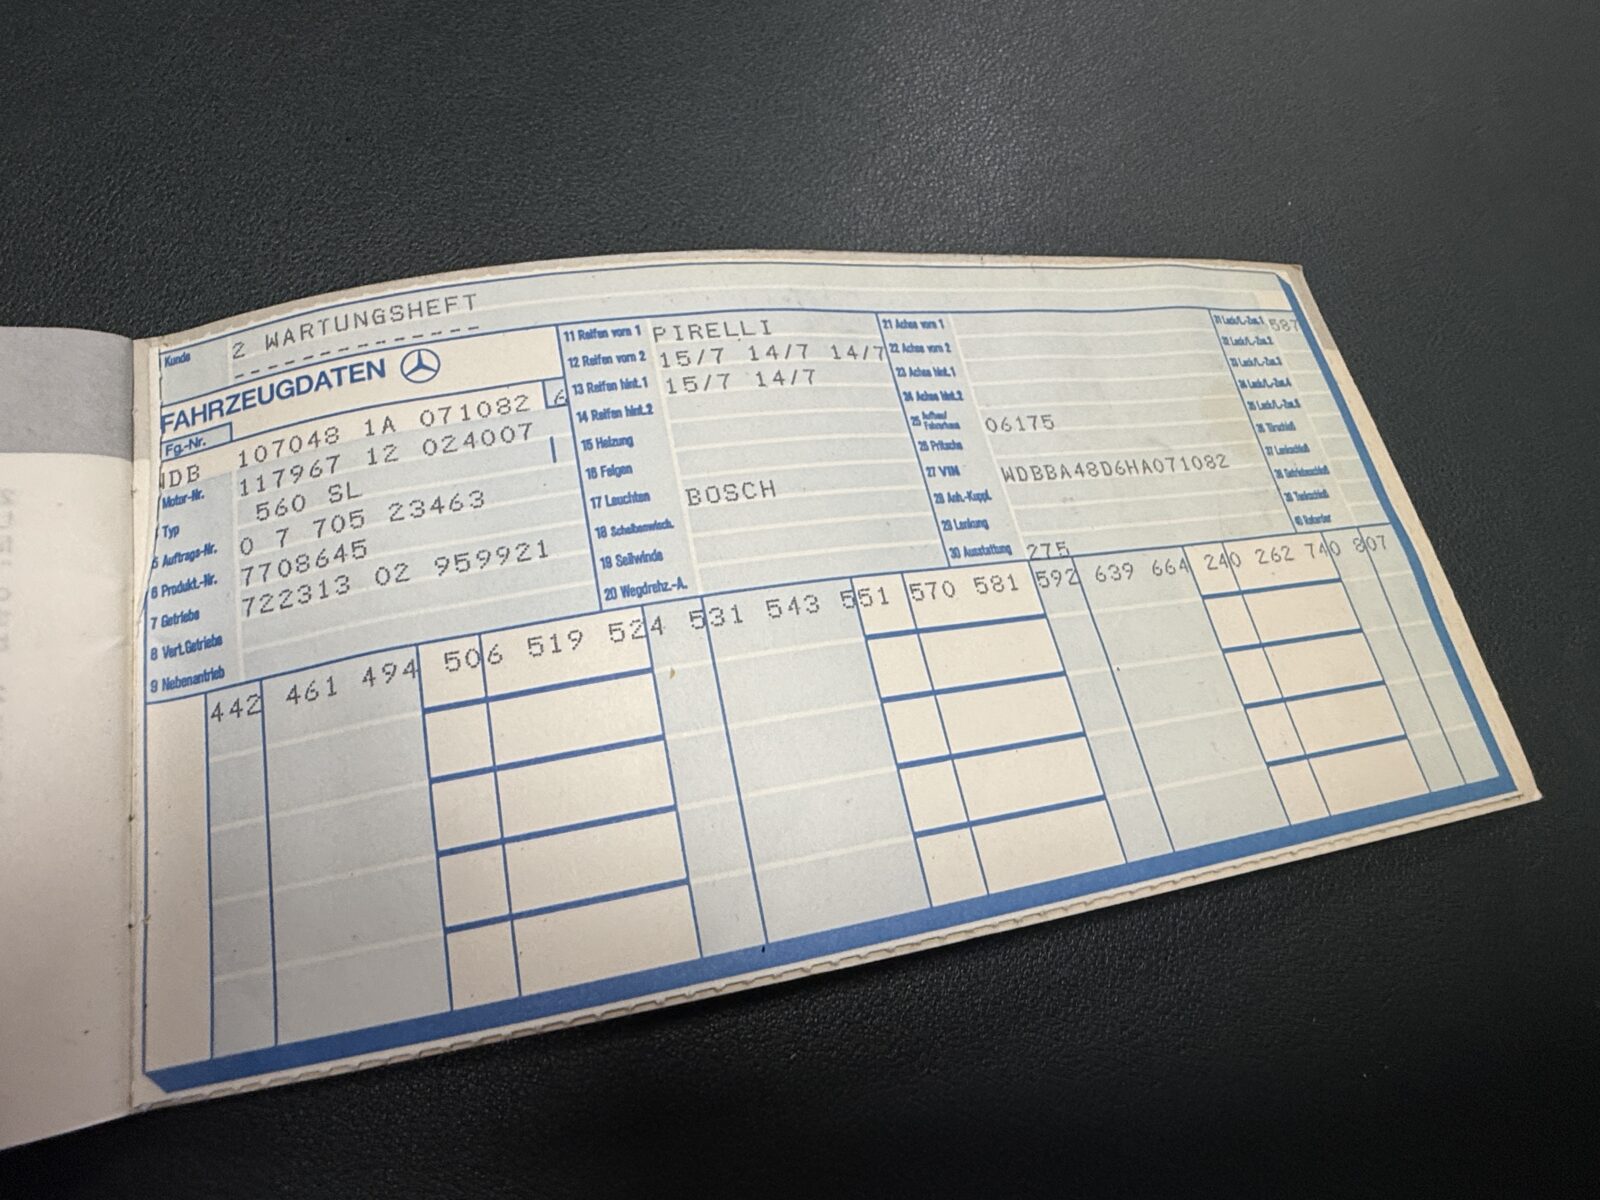 Kunde 2 WARTUNGSHEFT
FAHRZEUGDATEN
Fg.-Nr.
WDB 107048 1A 071082 6
Motor-Nr. 117967 12 024007
Typ 560 SL
5 Auftrags-Nr. 0 7 705 23463
6 Produkt.-Nr. 7708645
7 Getriebe 722313 02 959921
8 Vert.Getriebe
9 Nebenantrieb
11 Reifen vorn 1 PIRELLI
12 Reifen vorn 2 15/7 14/7 14/7
13 Reifen hint.1 15/7 14/7
14 Reifen hint.2
15 Heizung
16 Felgen
17 Leuchten BOSCH
18 Scheibenwisch.
19 Seilwinde
20 Wegdrehz.-A.
21 Achse vorn 1
22 Achse vorn 2
23 Achse hint.1
24 Achse hint.2
25 Aufbau/Fahrerhaus 06175
26 Pritsche
27 VIN WDBBA48D6HA071082
28 Anh.-Kuppl.
29 Lenkung
30 Ausstattung 275
31 Lack/L.-Zus.1 587
32 Lack/L.-Zus.2
33 Lack/L.-Zus.3
34 Lack/L.-Zus.4
35 Lack/L.-Zus.5
36 Türschloß
37 Lenkschloß
38 Getriebeschloß
39 Tankschloß
40 Retarder
442 461 494 506 519 524 531 543 551 570 581 592 639 664 240 262 740 807